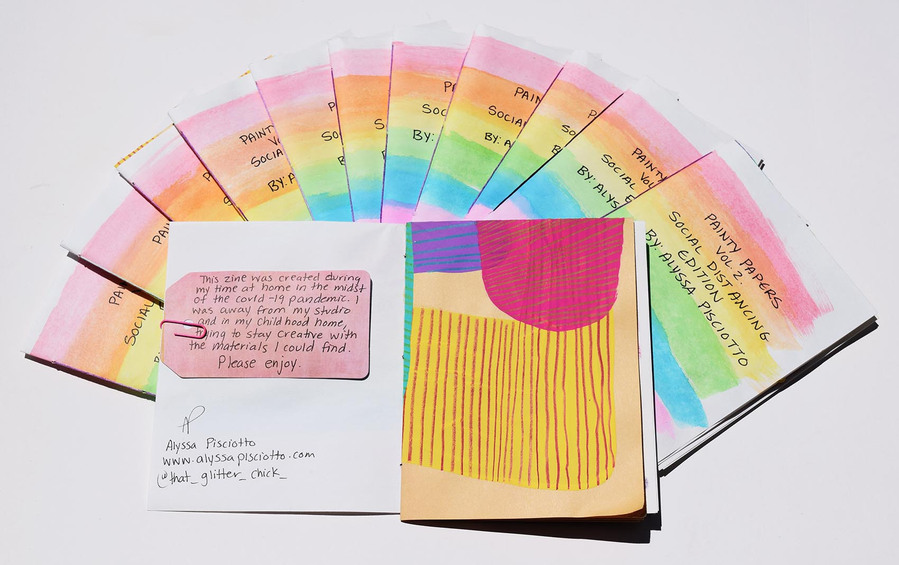 PAINTY PAPERS
VOL. 2
SOCIAL DISTANCING
EDITION
BY: ALYSSA PISCIOTTO
PAINTY
SOCIAL VOL
BY: ALYS E
PAINTY
SOCIA
BY: A
This zine was created during
my time at home in the midst
of the covid-19 pandemic. I
was away from my studio
and in my childhood home,
trying to stay creative with
the materials I could find.
Please enjoy.
AP
Alyssa Pisciotto
www.alyssapisciotto.com
@that_glitter_chick_